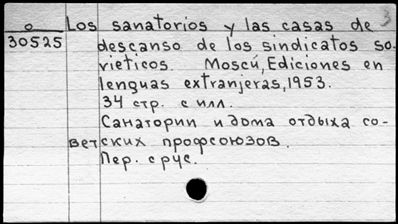 3
o Los sanatorios y las casas de
30525 descanso de los sindicatos so-
vieticos. Moscú, Ediciones en
lenguas extranjeras, 1953.
34 стр. с илл.
Санатории и дома отдыха со-
ветских профсоюзов.
Пер. с рус.